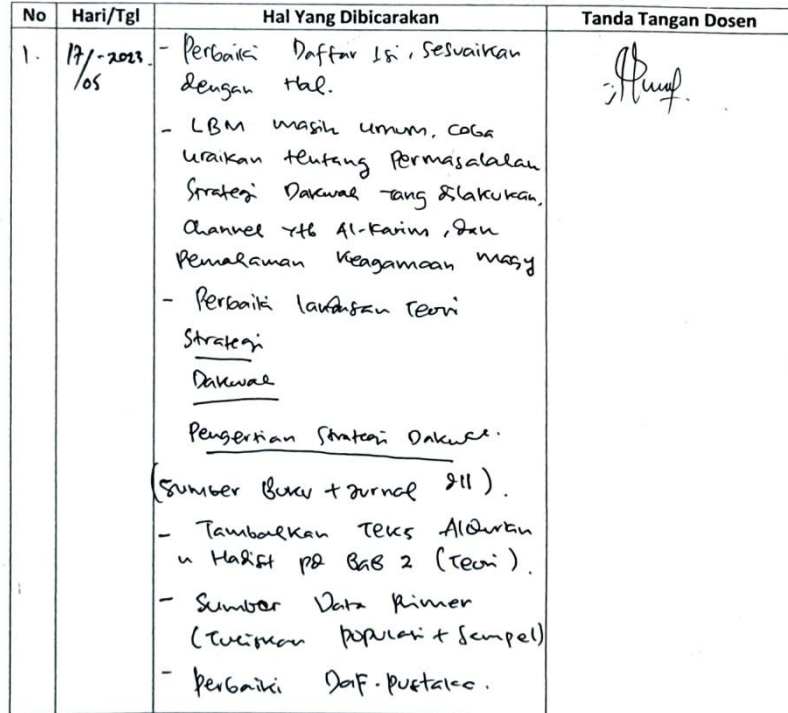 No Hari/Tgl Hal Yang Dibicarakan Tanda Tangan Dosen
1. 17/05-2023 - Perbaiki Daftar Isi, Sesuaikan
dengan Hal.
- LBM masih umum, coba
uraikan tentang Permasalahan
Strategi Dakwah yang dilakukan,
Channel ytb Al-Karim, dan
Pemahaman Keagamaan masy
- Perbaiki landasan Teori
Strategi
Dakwah
Pengertian Strategi Dakwah.
(Sumber Buku + Jurnal dll).
- Tambahkan Teks AlQur'an
n Hadist pd BaB 2 (Teori).
- Sumber Data Primer
(Tuliskan populasi + Sampel)
- perbaiki Daf. pustaka.